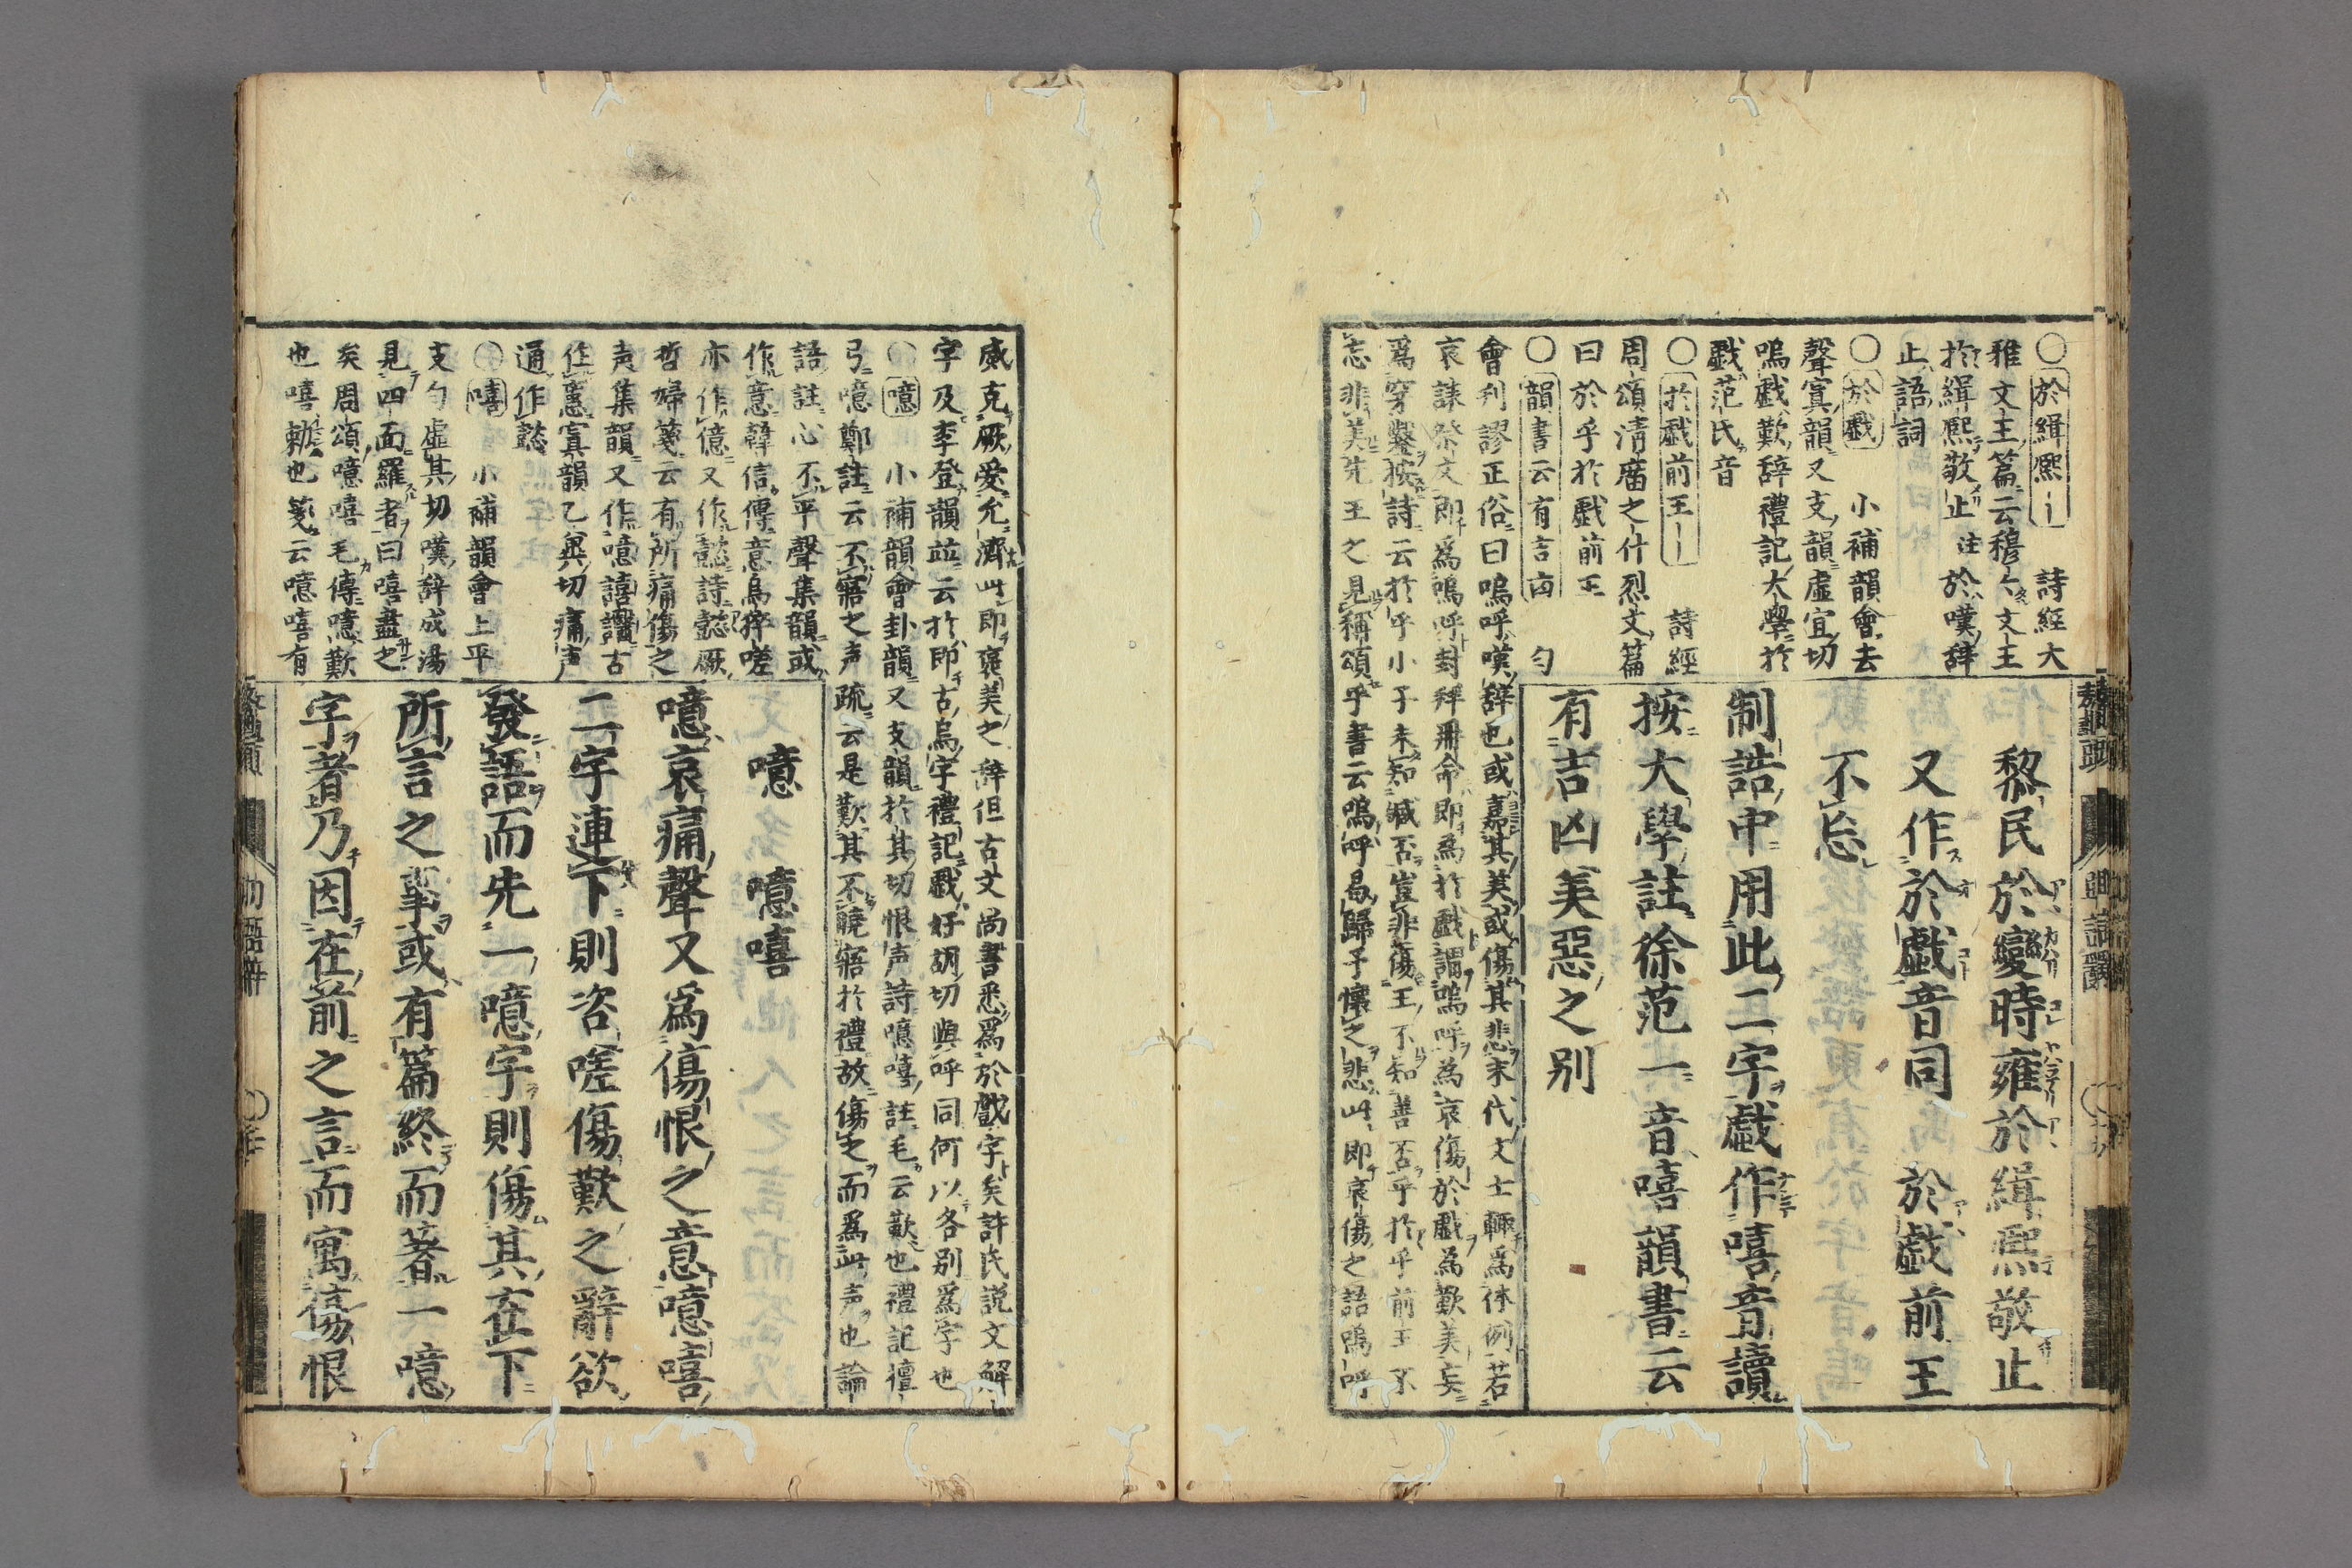 ○於緝熈〡〡 詩經大
雅文王篇云穆〻文王
於緝熈敬止 註 於嘆辞
止語詞
○於戯 小補韻會去
聲寘韻又支韻虚宜切
嗚戯歎辞禮記大學於
戯范氏音
○於戯前王〡〡 詩經
周頌清廟之什烈文篇
曰於乎於戯前王
○韻書云有吉凶 匀
會刋謬正俗曰嗚呼嘆辞也或嘉其美或傷其悲末代文士輙為体例若
哀誄祭文即為嗚呼封拜冊命即為於戯謂嗚呼為哀傷於戯為歎美妄
為穿鑿按詩云於乎小子未知臧否豈非傷王不知善否乎於乎前王不
忘非美先王之見稱頌乎書云嗚呼曷歸予懐之悲此即哀傷之語嗚呼
黎民於變時雍於緝熈敬止
又作於戯音同 於戯前王
不忘
制誥中用此二字戯作嘻音讀
按大學註徐范一音嘻韻書云
有吉凶美惡之别
威克厥愛允濟此即褒美之辞但古文尚書悉為於戯字矣許氏說文解
字及李登韻並云於即古烏字禮記戯好胡切與呼同何以各别為字也
○噫 小補韻會卦韻又支韻於其切恨声詩噫嘻註毛云歎也禮記檀
弓噫鄭註云不寤之声疏云是歎其不曉寤於禮故傷之而為此声也論
語註心不平聲集韻或
作意韓信傳意烏猝嗟
亦作億又作懿詩懿厥
哲婦箋云有所痛傷之
声集韻又作噫譆譖古
作𢡃寘韻乙兾切痛声
通作懿
○嘻 小補韻會上平
支匀虚其切嘆辞成湯
見四面羅者曰嘻盡之
矣周頌噫嘻毛傳噫歎
也嘻勑也箋云噫嘻有
噫 噫嘻
噫哀痛聲又為傷恨之意噫嘻
二字連下則咨嗟傷歎之辭欲
發語而先一噫字則傷其在下
所言之事或有篇終而著一噫
字者乃因在前之言而寓傷恨